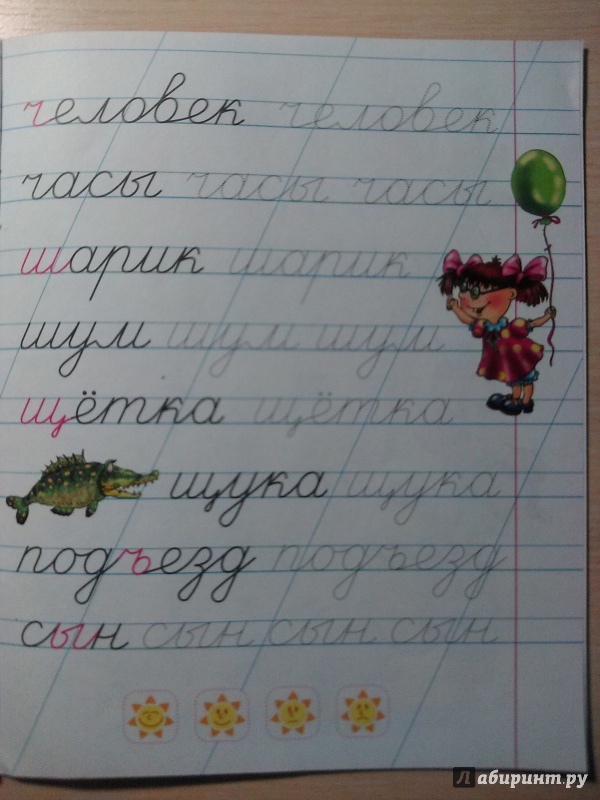 человек человек
часы часы часы
шарик шарик
шум шум шум
щётка щётка
щука щука
подъезд подъезд
сын сын сын сын
Лабиринт.ру